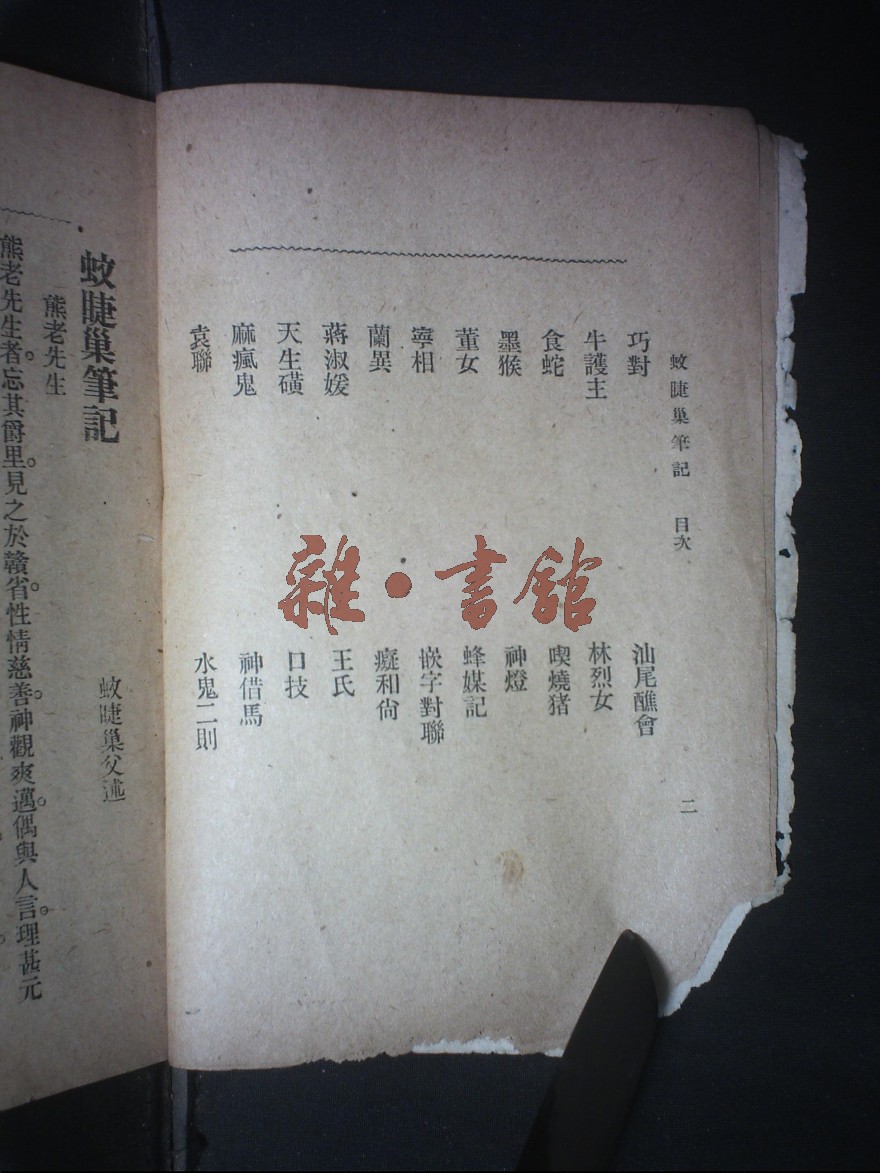 蚊睫巢筆記　目次　二
巧對
牛護主
食蛇
墨猴
董女
寧相
蘭異
蔣淑媛
天生磺
麻瘋鬼
袁聯
汕尾醮會
林烈女
喫燒猪
神燈
蜂媒記
嵌字對聯
癡和尙
王氏
口技
神借馬
水鬼二則
雜・書館
蚊睫巢筆記
蚊睫巢父述
熊老先生
熊老先生者。忘其爵里。見之於贛省。性情慈善。神觀爽邁。偶與人言。理甚元